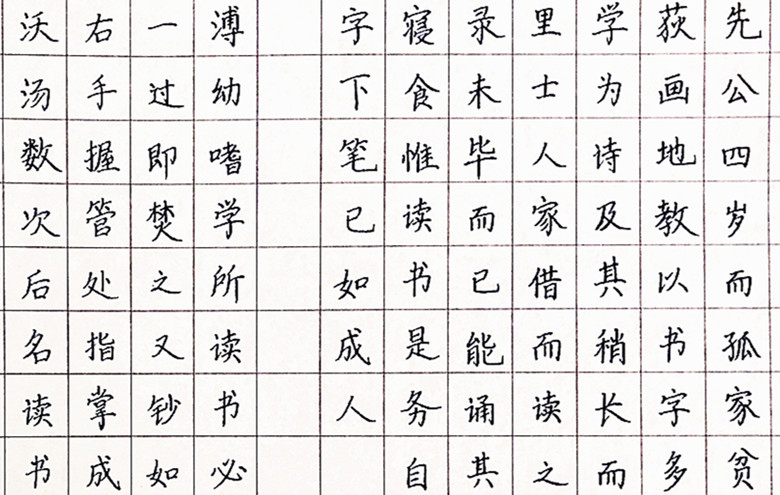 先公四岁而孤家贫
荻画地教以书字多
学为诗及其稍长而
里士人家借而读之
录未毕而已能诵其
寝食惟读书是务自
字下笔已如成人
溥幼嗜学所读书必
一过即焚之又钞如
右手握管处指掌成
沃汤数次后名读书